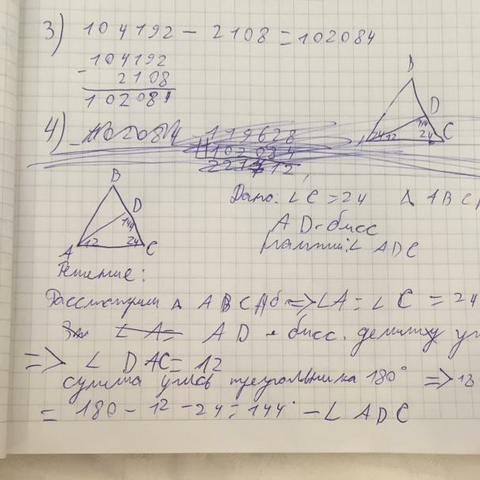 3) 104192 - 2108 = 102084
104192
- 2108
102081
4)
119628
102084
B
D
144
24 12 24 C
B
D
144
A 12 24 C
Дано: ∠C = 24 Δ ABC
AD - бисс
∠ ADC
Решение:
Рассмотрим Δ ABC => ∠A = ∠C = 24
∠A = AD - бисс. делит уг
=> ∠ DAC = 12
сумма углов треугольника 180° =>
= 180 - 12 - 24 = 144° - ∠ ADC